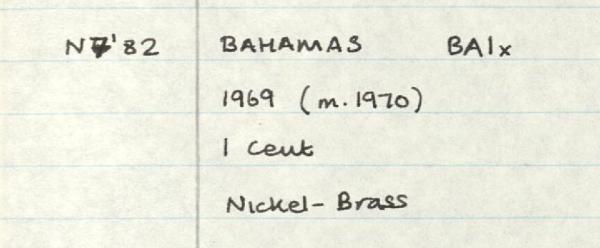 N7'82 BAHAMAS BA1x
1969 (m.1970)
1 Cent
Nickel-Brass